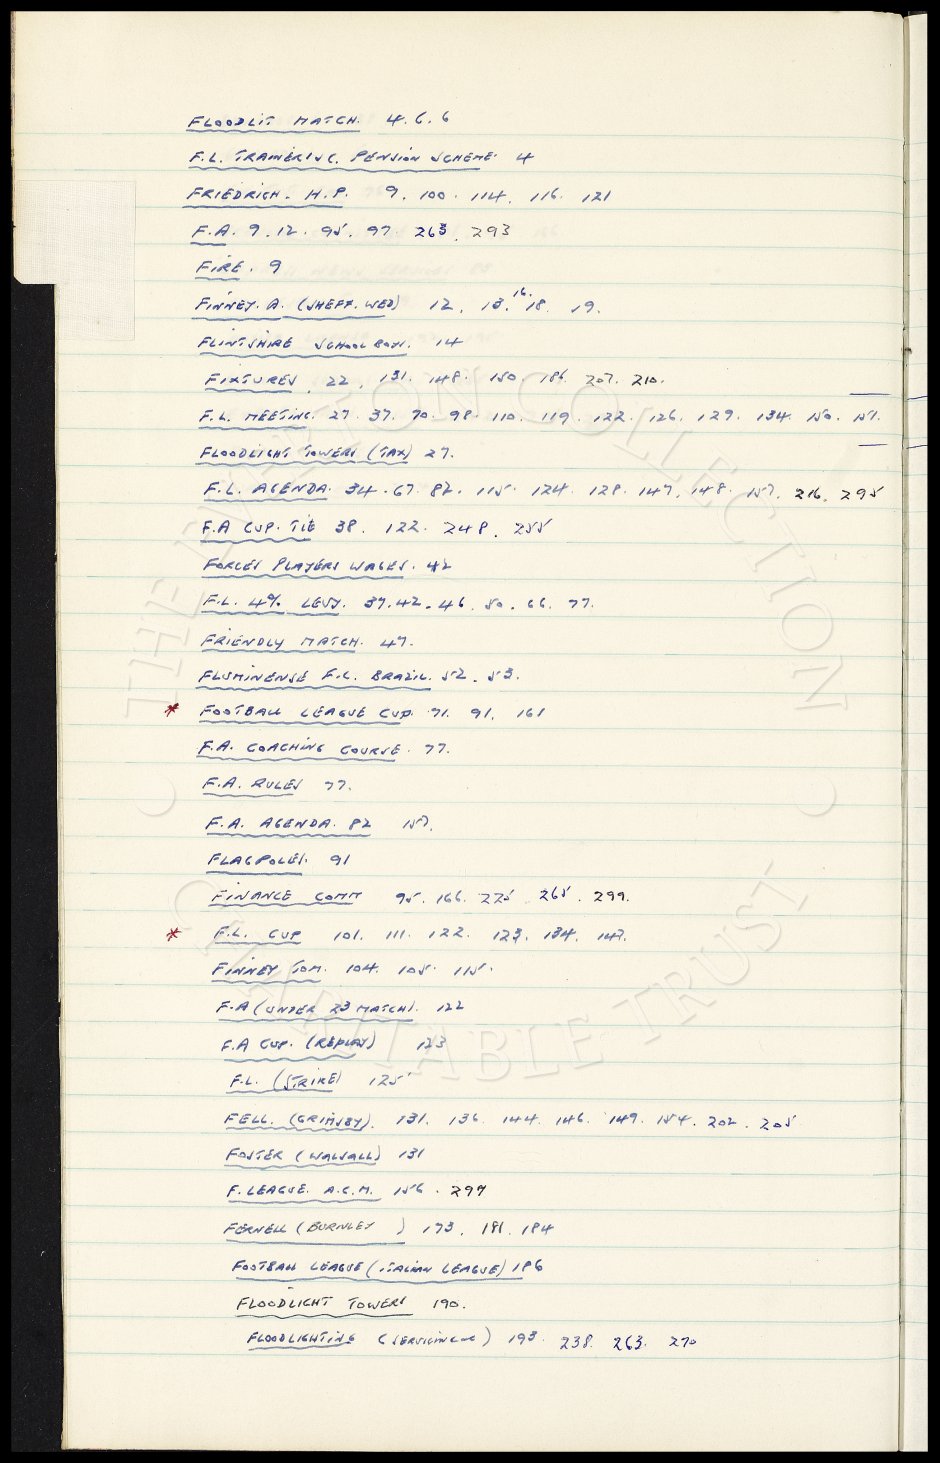 FLOODLIT MATCH. 4. 6. 6
F.L. TRAINERS &C. PENSION SCHEME. 4
FRIEDRICH. H.P. 9. 100. 114. 116. 121
F.A. 9. 12. 95. 97. 263. 293
FIRE. 9
FINNEY. A. (SHEFF. WED) 12. 13. 16. 18. 19.
FLINTSHIRE SCHOOLBOYS. 14
FIXTURES. 22. 131. 148. 150. 186. 207. 210.
F.L. MEETING. 27. 37. 70. 98. 110. 119. 122. 126. 129. 134. 150. 151.
FLOODLIGHT TOWERS (TAX) 27.
F.L. AGENDA. 34. 67. 82. 115. 124. 128. 147. 148. 157. 216. 295
F.A CUP. TIE 38. 122. 248. 255
FORCES PLAYERS WAGES. 42
F.L. 4% LEVY. 37. 42. 46. 50. 66. 77.
FRIENDLY MATCH. 47.
FLUMINENSE F.C. BRAZIL. 52. 53.
* FOOTBALL LEAGUE CUP. 71. 91. 161
F.A. COACHING COURSE. 77.
F.A. RULES 77.
F.A. AGENDA. 82 157.
FLAGPOLES. 91
FINANCE COMM 95. 166. 225. 265. 299.
* F.L. CUP 101. 111. 122. 123. 134. 147.
FINNEY TOM. 104. 105. 115.
F.A (UNDER 23 MATCH). 122
F.A CUP. (REPLAY) 123
F.L. (STRIKE) 125
FELL. (GRIMSBY). 131. 136. 144. 146. 149. 154. 202. 205
FOSTER (WALSALL) 131
F. LEAGUE. A.G.M. 156. 297
FERNELL (BURNLEY ) 173. 181. 184
FOOTBALL LEAGUE (ITALIAN LEAGUE) 186
FLOODLIGHT TOWERS 190.
FLOODLIGHTING (SERVICING OF) 193. 238. 263. 270
THE EVERTON COLLECTION
CHARITABLE TRUST